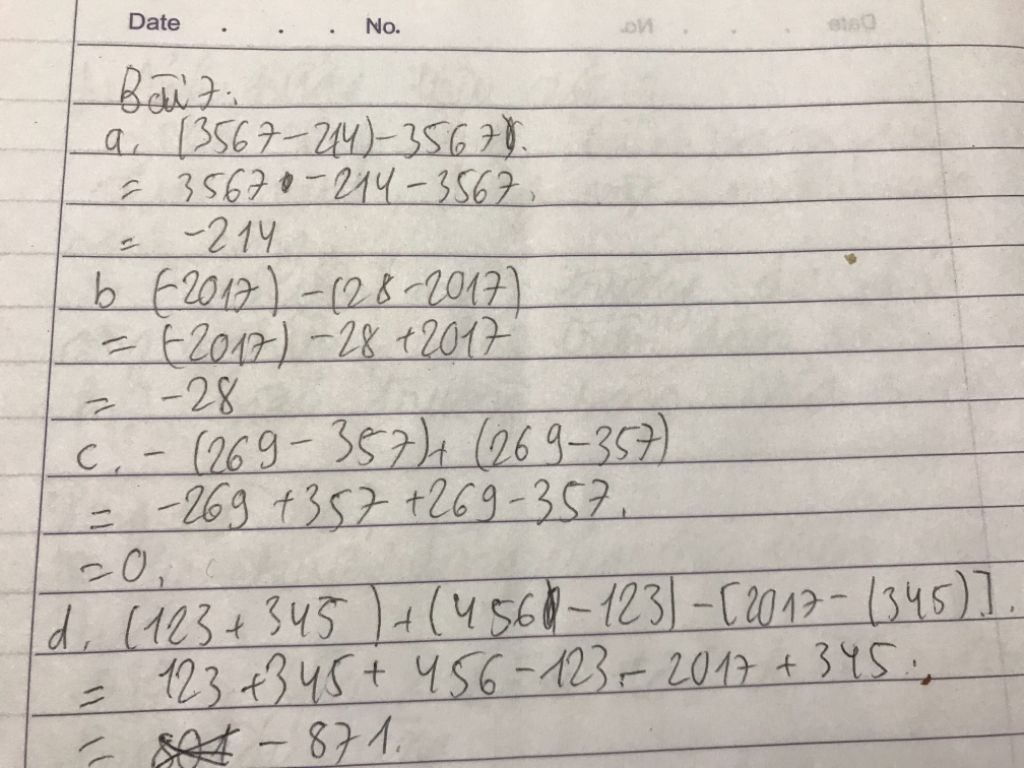 Date . . . No.
Bài 7:
a. (3567-214)-3567.
= 3567 -214-3567.
= -214
b (-2017) -(28-2017)
= (-2017) -28+2017
= -28
c. - (269-357)+ (269-357)
= -269 +357 +269-357.
=0.
d. (123+345)+(456-123)-[2017-(345)].
= 123+345+ 456-123-2017+345.
= -871.